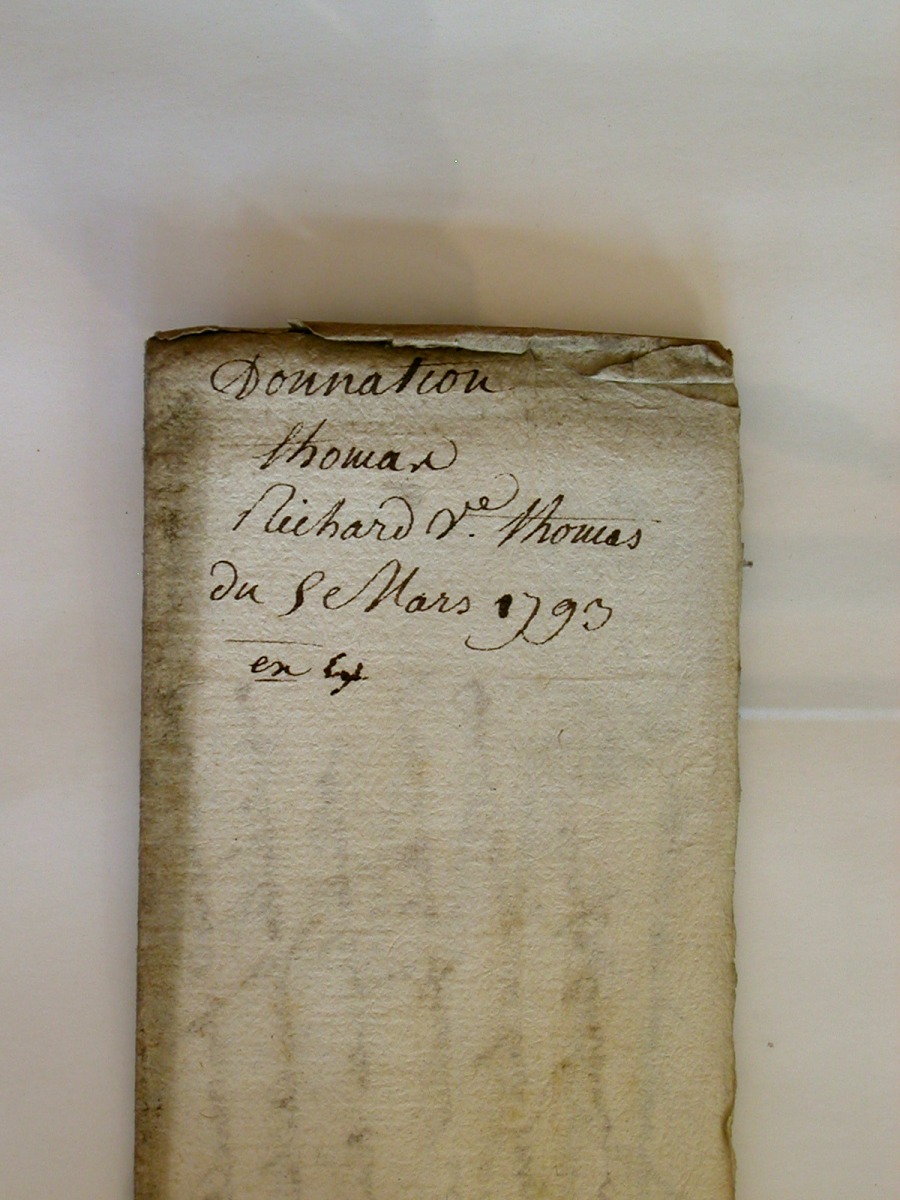 Donnation
thomas
Richard Ve. thomas
du 5e Mars 1793
en